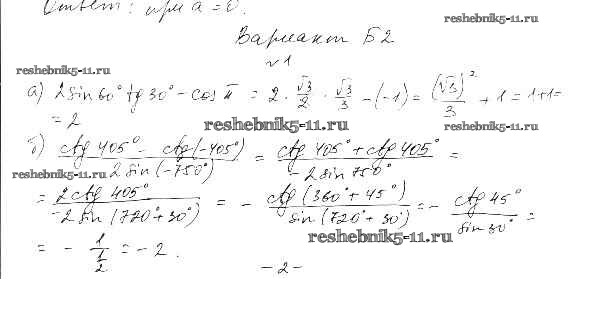 Ответ: при a = 0.
reshebnik5-11.ru
Вариант Б2
№1
reshebnik5-11.ru
а) 2 sin 60° tg 30° - cos π = 2 · √3/2 · √3/3 - (-1) = (√3)²/3 + 1 = 1+1=
= 2
reshebnik5-11.ru
reshebnik5-11.ru
б) (ctg 405° - ctg(-405°))/(2 sin(-750°)) = (ctg 405° + ctg 405°)/(-2 sin 750°) =
reshebnik5-11.ru
= 2ctg 405°/(-2 sin(720°+30°)) = - ctg(360°+45°)/sin(720°+30°) = - ctg 45°/sin 30° =
reshebnik5-11.ru
reshebnik5-11.ru
= - 1/(1/2) = -2.
-2-